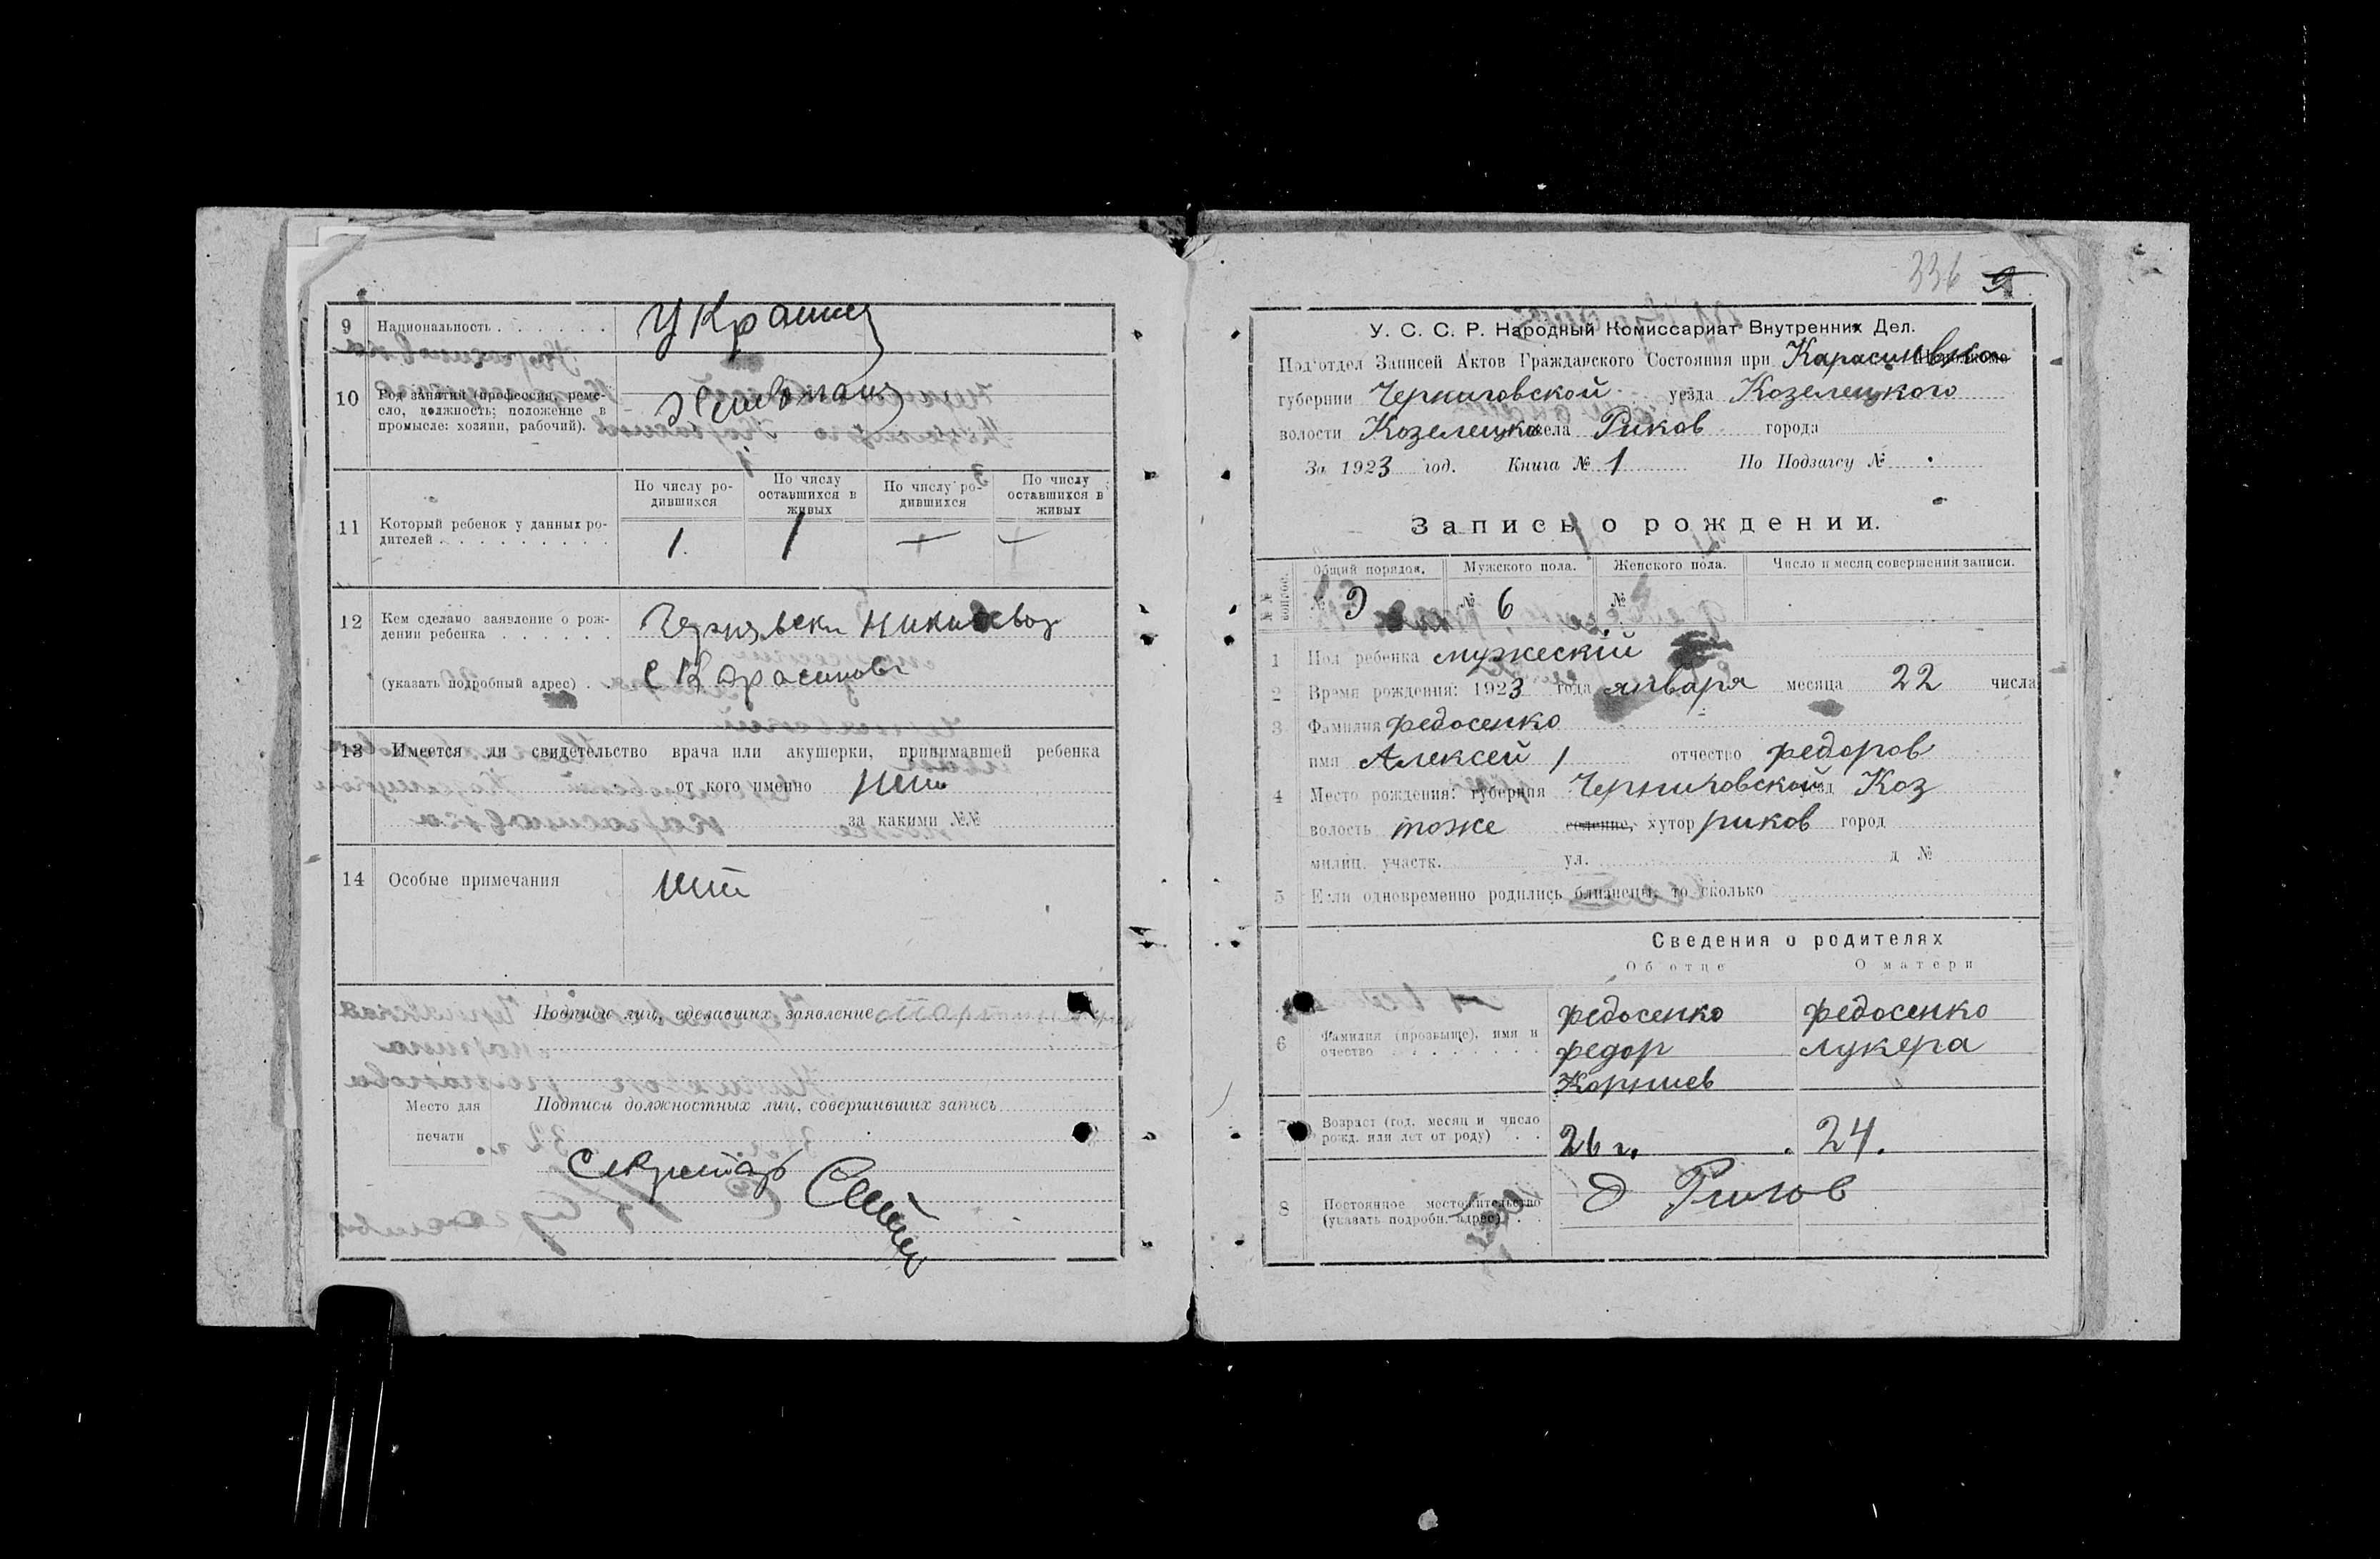 9 Национальность Украинец
10 Род занятий (профессия, реме-
сло, должность; положение в
промысле: хозяин, рабочий).
11 Который ребенок у данных ро-
дителей
По числу ро-
дившихся
По числу
оставшихся в
живых
По числу ро-
дившихся
По числу
оставшихся в
живых
1. 1 + +
12 Кем сделано заявление о рож-
дении ребенка
(указать подробный адрес)
13 Имеется ли свидетельство врача или акушерки, принимавшей ребенка
от кого именно нет
за какими №№
14 Особые примечания нет
Подписи лиц, сделавших заявление
Место для
печати
Подписи должностных лиц, совершивших запись
Секретарь
336
У. С. С. Р. Народный Комиссариат Внутренних Дел.
Под'отдел Записей Актов Гражданского Состояния при
губернии Черниговской уезда Козелецкого
волости Козелецка села Риков города
За 1923 год. Книга № 1 По Подзагсу №
Запись о рождении.
№№ вопрос.
Общий порядок. Мужского пола. Женского пола. Число и месяц совершения записи.
№ 9 № 6 №
1 Пол ребенка мужескій
2 Время рождения: 1923 года января месяца 22 числа
3 Фамилия Федосенко
имя Алексей отчество Федоров
4 Место рождения: губерния Черниговской уезд Коз
волость тоже селение, хутор риков город
милиц. участк. ул. д №
5 Если одновременно родились близнецы, то сколько
Сведения о родителях
Об отце О матери
6 Фамилия (прозвыще), имя и
очество
Федосенко
Федор
Корниев
Федосенко
Лукера
7 Возраст (год, месяц и число
рожд. или лет от роду)
26 г. 24.
8 Постоянное местожительство
(указать подробн. адрес)
Риков